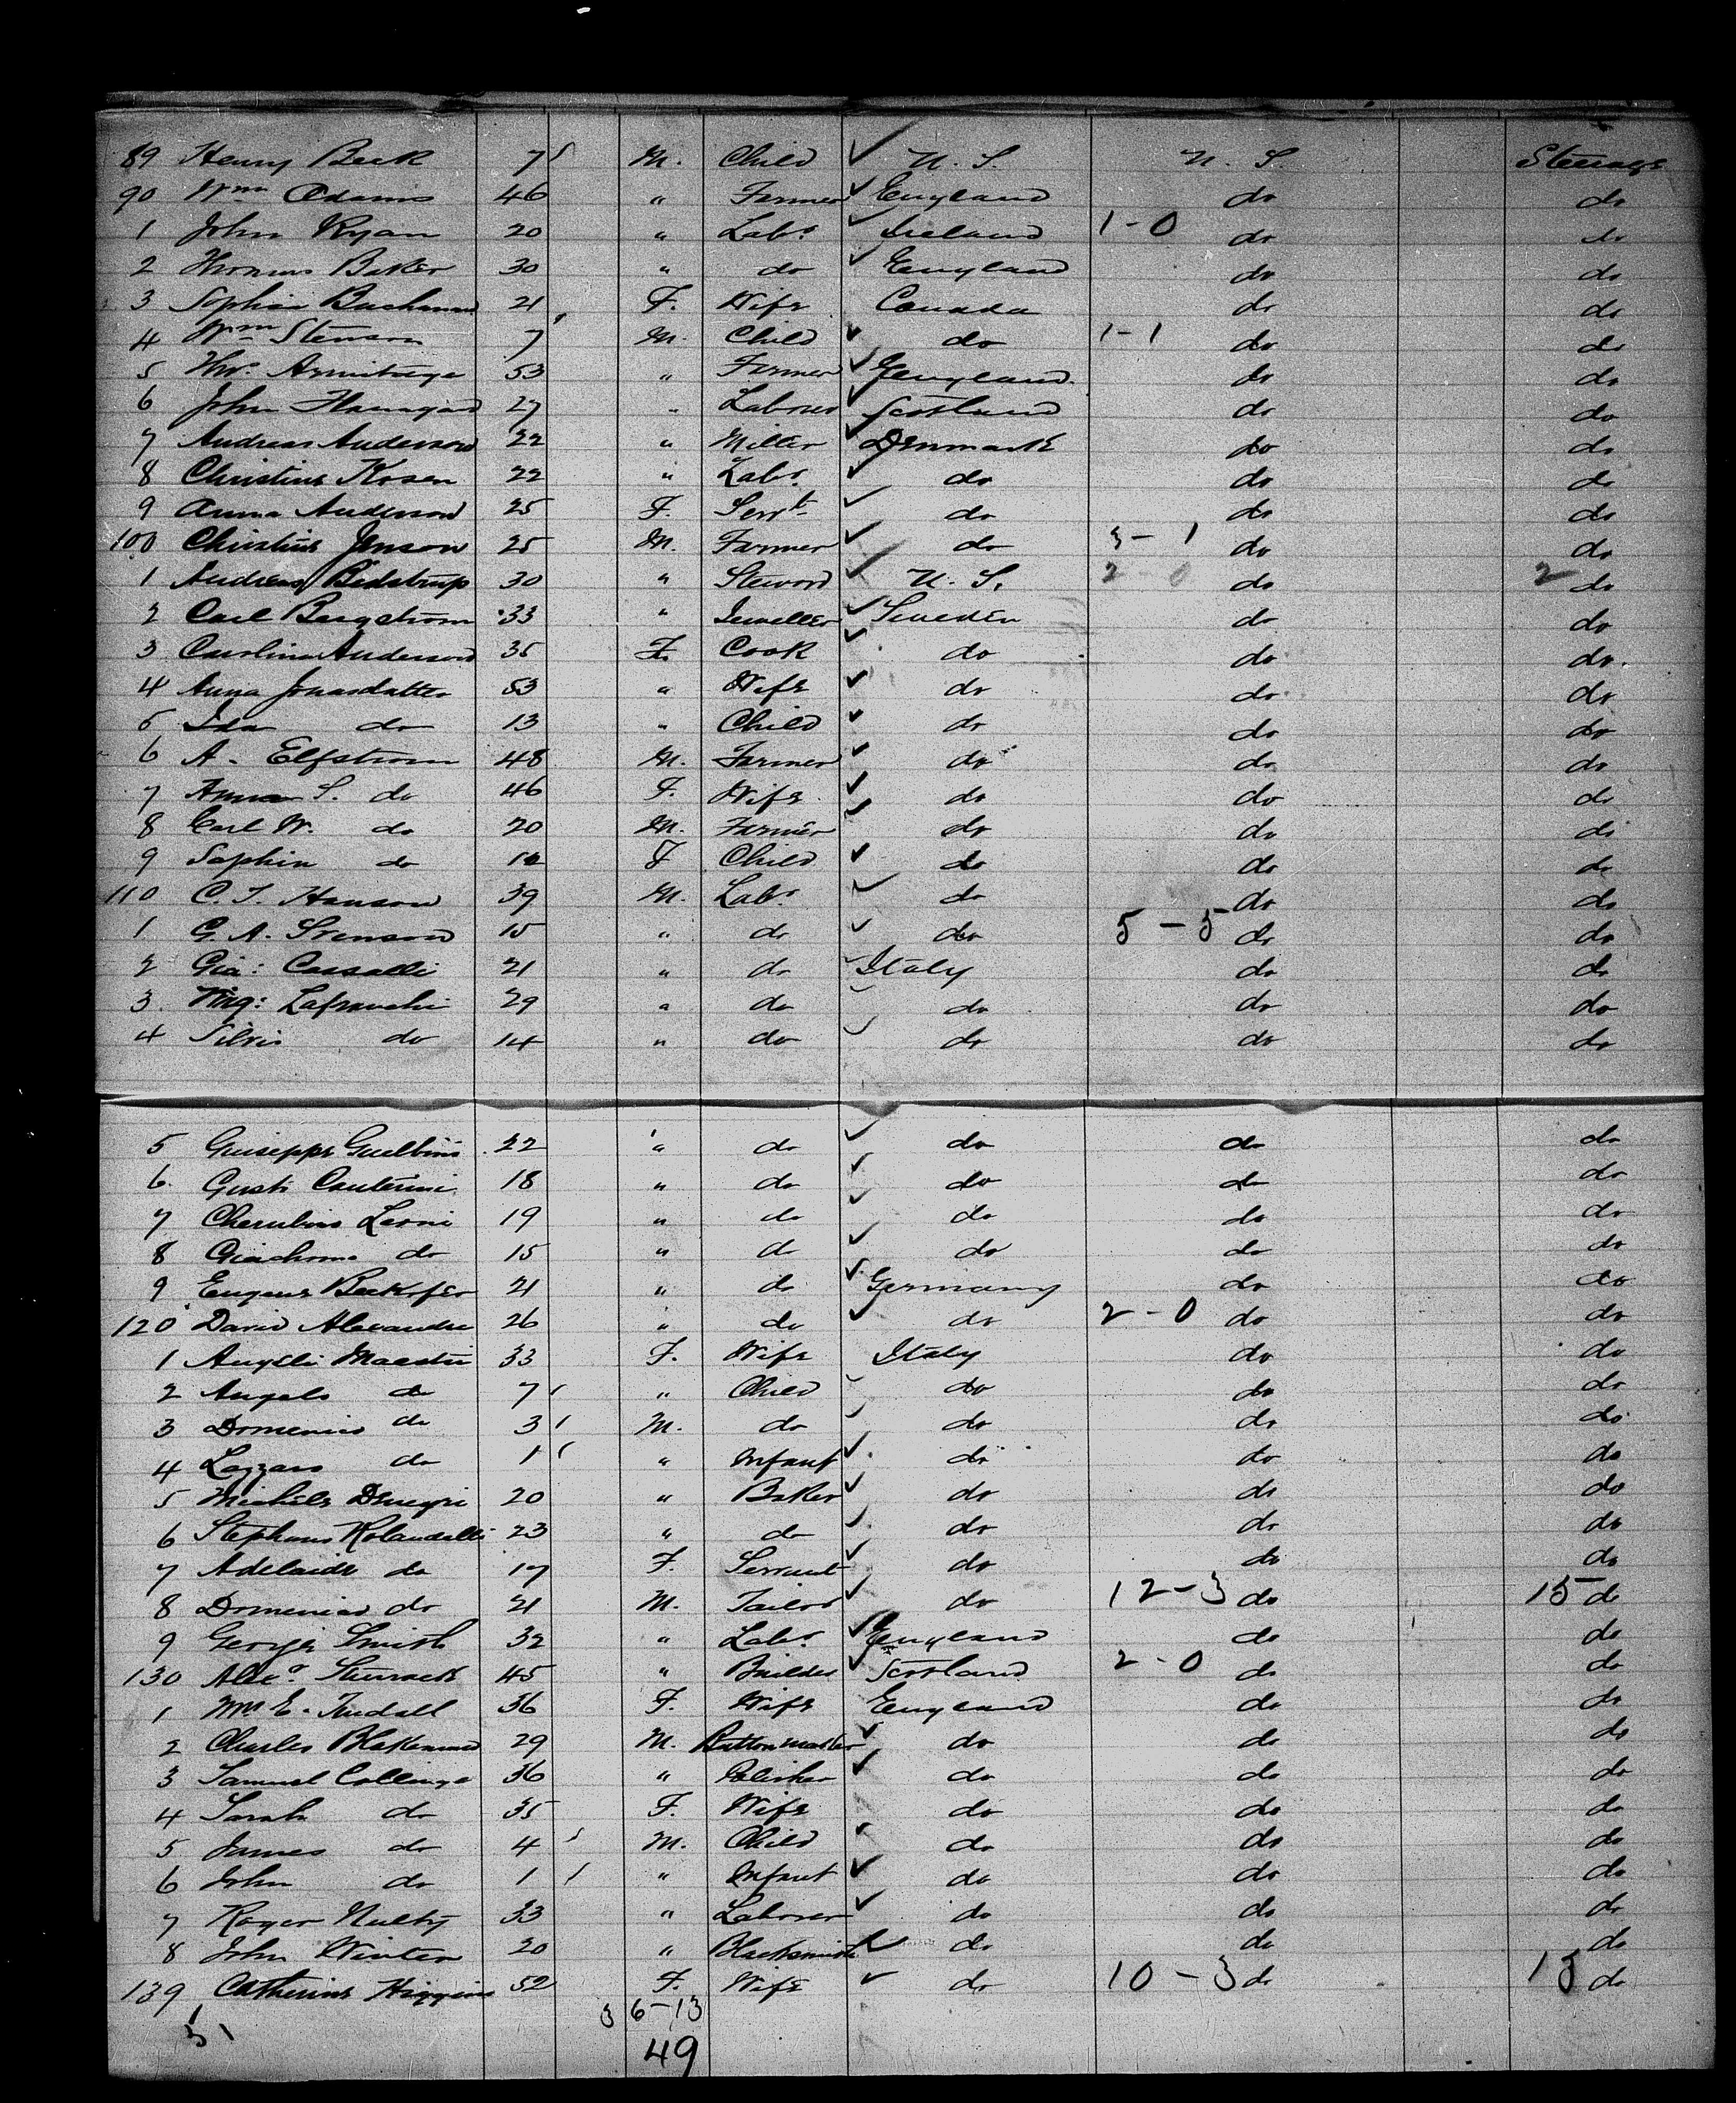 89 Henry Beck 7 M. Child ✓ U. S. U. S. Steerage
90 Wm Adams 46 " Farmer ✓ England do do
1 John Ryan 20 " Labr ✓ Ireland 1-0 do do
2 Thomas Baker 30 " do ✓ England do do
3 Sophia Buchanan 21 F. Wife Canada do do
4 Wm Stenson 7 M. Child ✓ do 1-1 do do
5 Thos. Armitage 53 " Farmer ✓ England. do do
6 John Flanagan 27 " Laborer ✓ Scotland do do
7 Andreas Anderson 22 " Miller ✓ Denmark do do
8 Christine Kosen 22 " Labr. ✓ do do do
9 Anna Anderson 25 F. Servt. ✓ do do do
100 Christine Jenson 25 M. Farmer ✓ do 3-1 do do
1 Andreas Bedstrup 30 " Steward ✓ U. S. 2-0 do 2 do
2 Carl Bergstrom 33 " Jeweller ✓ Sweden do do
3 Carolina Anderson 35 F. Cook ✓ do do do.
4 Anna Jonasdatter 53 " Wife ✓ do do do
5 Ida do 13 " Child ✓ do do do
6 A. Elfstrom 48 M. Farmer ✓ do do do
7 Anna S. do 46 F. Wife ✓ do do do
8 Carl W. do 20 M. Farmer ✓ do do do
9 Sophia do F Child ✓ do do do
110 C. J. Hanson 39 M. Labr. ✓ do do do
1 G. A. Svenson 15 " do ✓ do 5-5 do do
2 Gia: Cassalli 21 " do ✓ Italy do do
3. 29 " do ✓ do do do
4 Silvis do 14 " do ✓ do do do
5 Guiseppe 22 " do ✓ do do do
6. Gusti Canterini 18 " do ✓ do do do
7 Cherubino Leoni 19 " do ✓ do do do
8 Giachomo do 15 " do ✓ do do do
9 Eugene 21 " do ✓ Germany do do
120 David Alexandre 26 " do ✓ do 2-0 do do
1 Angeli Maestri 33 F. Wife Italy do do
2 Angelo do 7 " Child ✓ do do do
3 Domenico do 3 M. do ✓ do do do
4 Lazzaro do 1 " Infant ✓ do do do
5 Michele Denegri 20 " Baker ✓ do do do
6 Stephano Rolandelli 23 " do ✓ do do do
7 Adelaide do 17 F. Servant ✓ do do do
8 Domenico do 21 M. Tailor ✓ do 12-3 do 15 do
9 George Smith 32 " Labr. ✓ England do do
130 Alexr Sturrock 45 " Builder ✓ Scotland 2-0 do do
1 Mrs E. Tindall 36 F. Wife England do do
2 Charles Blakeman 29 M. Button maker ✓ do do do
3 Samuel Collinge 36 " Polisher ✓ do do do
4 Sarah do 35 F. Wife do do do
5 James do 4 M. Child ✓ do do do
6 John do 1 " Infant ✓ do do do
7 Roger Nulty 33 " Laborer ✓ do do do
8 John Winter 20 " Blacksmith ✓ do do do
139 Catherine Higgins 52 F. Wife ✓ do 10-3 do 13 do
36-13
51
49